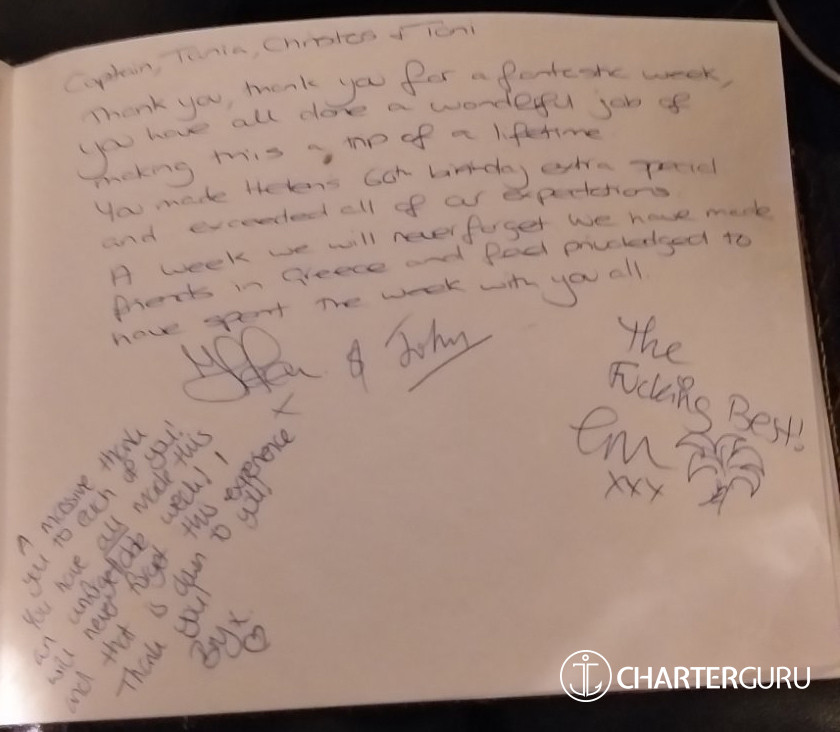 Captain, Tania, Christos & Toni
Thank you, thank you for a fantastic week,
you have all done a wonderful job of
making this a trip of a lifetime
You made Helens 60th birthday extra special
and exceeded all of our expectations.
A week we will never forget we have made
friends in Greece and feel priviledged to
have spent the week with you all.
& John
x
The
Fucking Best!
Em
xxx
A massive thank
you to each of you!
You have all made this
an unforgettable week! I
will never forget this experience
and that is down to you!
Thank you!
Bry x
CHARTERGURU